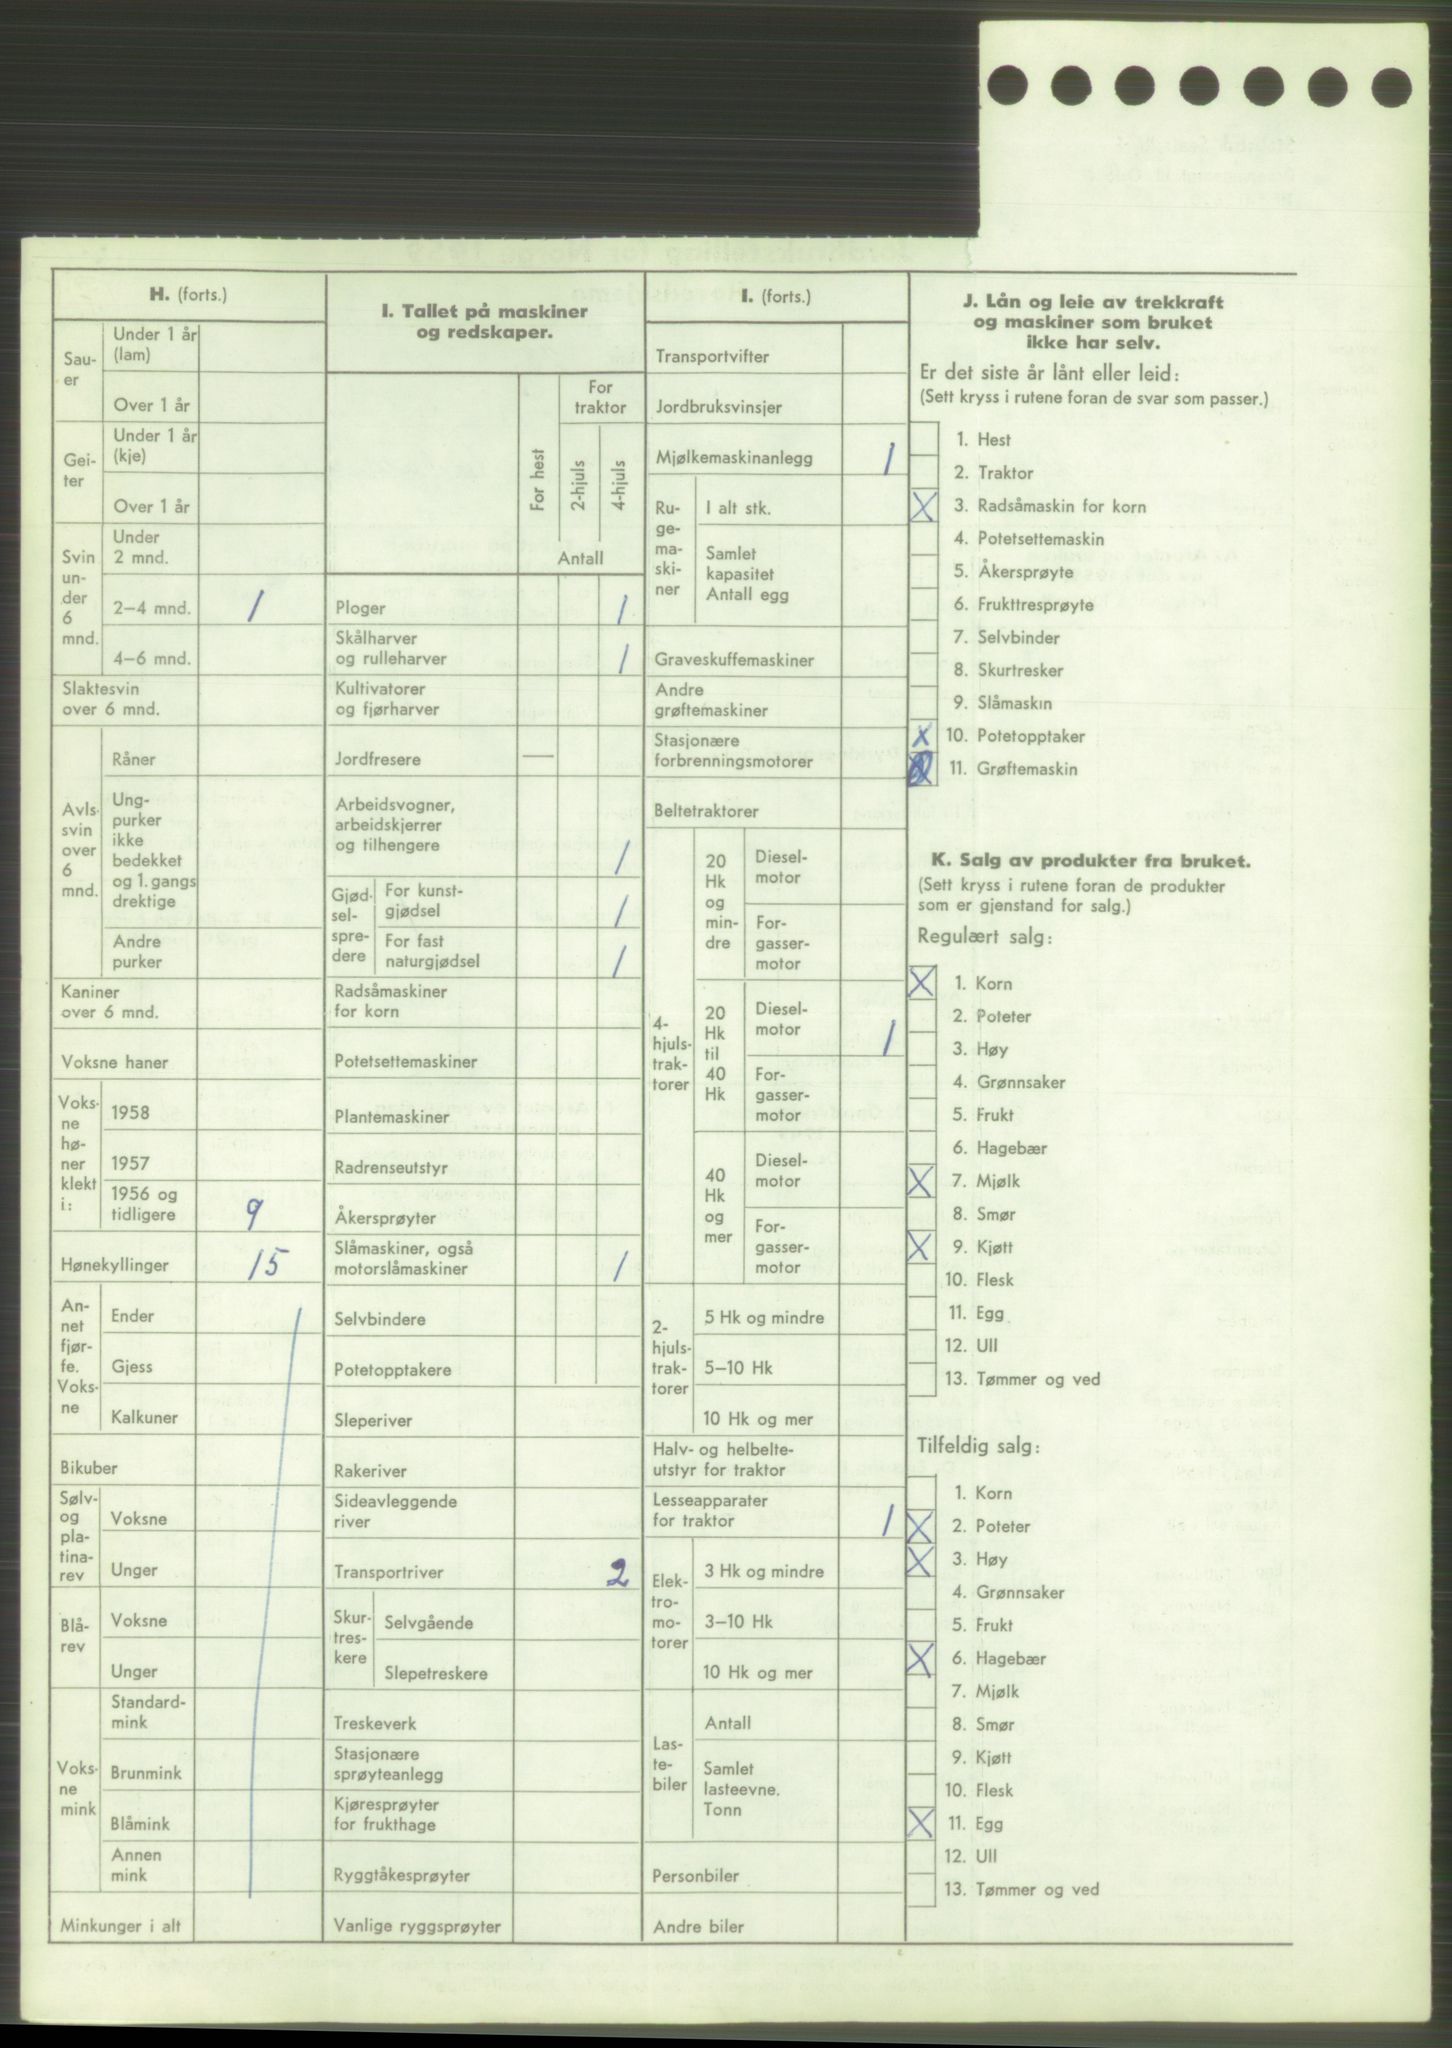 H. (forts.)
Sau-
er
Under 1 år
(lam)
Over 1 år
Gei-
ter
Under 1 år
(kje)
Over 1 år
Svin
un-
der
6
mnd.
Under
2 mnd.
2–4 mnd. 1
4–6 mnd.
Slaktesvin
over 6 mnd.
Avls-
svin
over
6
mnd.
Råner
Ung-
purker
ikke
bedekket
og 1. gangs
drektige
Andre
purker
Kaniner
over 6 mnd.
Voksne haner
Voks-
ne
hø-
ner
klekt
i:
1958
1957
1956 og
tidligere 9
Hønekyllinger 15
An-
net
fjør-
fe.
Voks-
ne
Ender
Gjess
Kalkuner
Bikuber
Sølv-
og
pla-
tina-
rev
Voksne
Unger
Blå-
rev
Voksne
Unger
Voks-
ne
mink
Standard-
mink
Brunmink
Blåmink
Annen
mink
Minkunger i alt
I. Tallet på maskiner
og redskaper.
For hest
For
traktor
2-hjuls
4-hjuls
Antall
Ploger 1
Skålharver
og rulleharver 1
Kultivatorer
og fjørharver
Jordfresere —
Arbeidsvogner,
arbeidskjerrer
og tilhengere 1
Gjød-
sel-
spre-
dere
For kunst-
gjødsel 1
For fast
naturgjødsel 1
Radsåmaskiner
for korn
Potetsettemaskiner
Plantemaskiner
Radrenseutstyr
Åkersprøyter
Slåmaskiner, også
motorslåmaskiner 1
Selvbindere
Potetopptakere
Sleperiver
Rakeriver
Sideavleggende
river
Transportriver 2
Skur-
tres-
kere
Selvgående
Slepetreskere
Treskeverk
Stasjonære
sprøyteanlegg
Kjøresprøyter
for frukthage
Ryggtåkesprøyter
Vanlige ryggsprøyter
I. (forts.)
Transportvifter
Jordbruksvinsjer
Mjølkemaskinanlegg 1
Ru-
ge-
ma-
ski-
ner
I alt stk.
Samlet
kapasitet
Antall egg
Graveskuffemaskiner
Andre
grøftemaskiner
Stasjonære
forbrenningsmotorer
Beltetraktorer
4-
hjuls-
trak-
torer
20
Hk
og
min-
dre
Diesel-
motor
For-
gasser-
motor
20
Hk
til
40
Hk
Diesel-
motor 1
For-
gasser-
motor
40
Hk
og
mer
Diesel-
motor
For-
gasser-
motor
2-
hjuls-
trak-
torer
5 Hk og mindre
5–10 Hk
10 Hk og mer
Halv- og helbelte-
utstyr for traktor
Lesseapparater
for traktor 1
Elek-
tro-
mo-
torer
3 Hk og mindre
3–10 Hk
10 Hk og mer
Las-
te-
biler
Antall
Samlet
lasteevne.
Tonn
Personbiler
Andre biler
J. Lån og leie av trekkraft
og maskiner som bruket
ikke har selv.
Er det siste år lånt eller leid:
(Sett kryss i rutene foran de svar som passer.)
1. Hest
2. Traktor
X 3. Radsåmaskin for korn
4. Potetsettemaskin
5. Åkersprøyte
6. Frukttresprøyte
7. Selvbinder
8. Skurtresker
9. Slåmaskin
x 10. Potetopptaker
11. Grøftemaskin
K. Salg av produkter fra bruket.
(Sett kryss i rutene foran de produkter
som er gjenstand for salg.)
Regulært salg:
X 1. Korn
2. Poteter
3. Høy
4. Grønnsaker
5. Frukt
6. Hagebær
X 7. Mjølk
8. Smør
X 9. Kjøtt
10. Flesk
11. Egg
12. Ull
13. Tømmer og ved
Tilfeldig salg:
1. Korn
X 2. Poteter
X 3. Høy
4. Grønnsaker
5. Frukt
X 6. Hagebær
7. Mjølk
8. Smør
9. Kjøtt
10. Flesk
X 11. Egg
12. Ull
13. Tømmer og ved